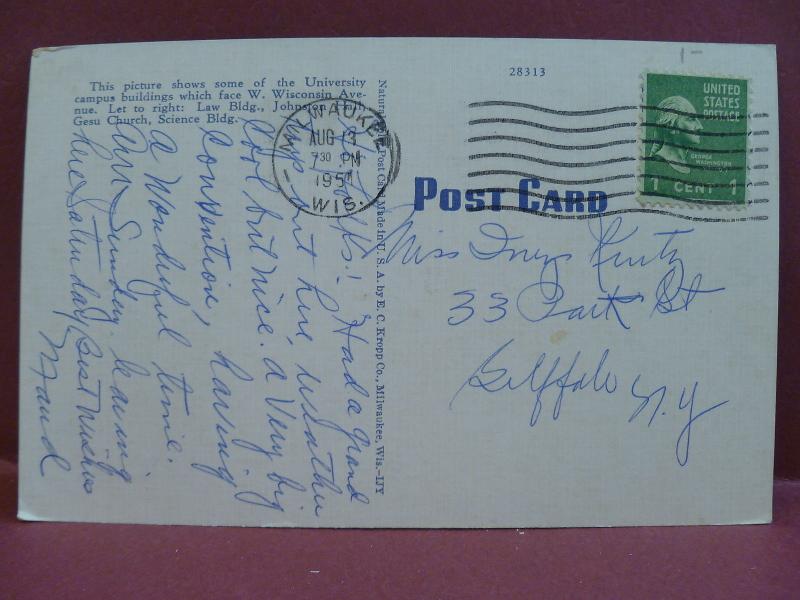 This picture shows some of the University
campus buildings which face W. Wisconsin Ave-
nue. Let to right: Law Bldg., Johnston Hall,
Gesu Church, Science Bldg.
Had a grand
out here weather
Cool and nice. a Very big
Convention, having
a Wonderful time.
Arr Sunday leaving
here Saturday Best Wishes
Maud
Natural Post Card Made in U. S. A. by E. C. Kropp Co., Milwaukee, Wis.-IJY
28313
MILWAUKEE
AUG 13
7 30 PM
1951
WIS.
UNITED
STATES
POSTAGE
GEORGE
WASHINGTON
1 CENT 1
POST CARD
Miss Inez Kurtz
33 Park St
Buffalo N.Y